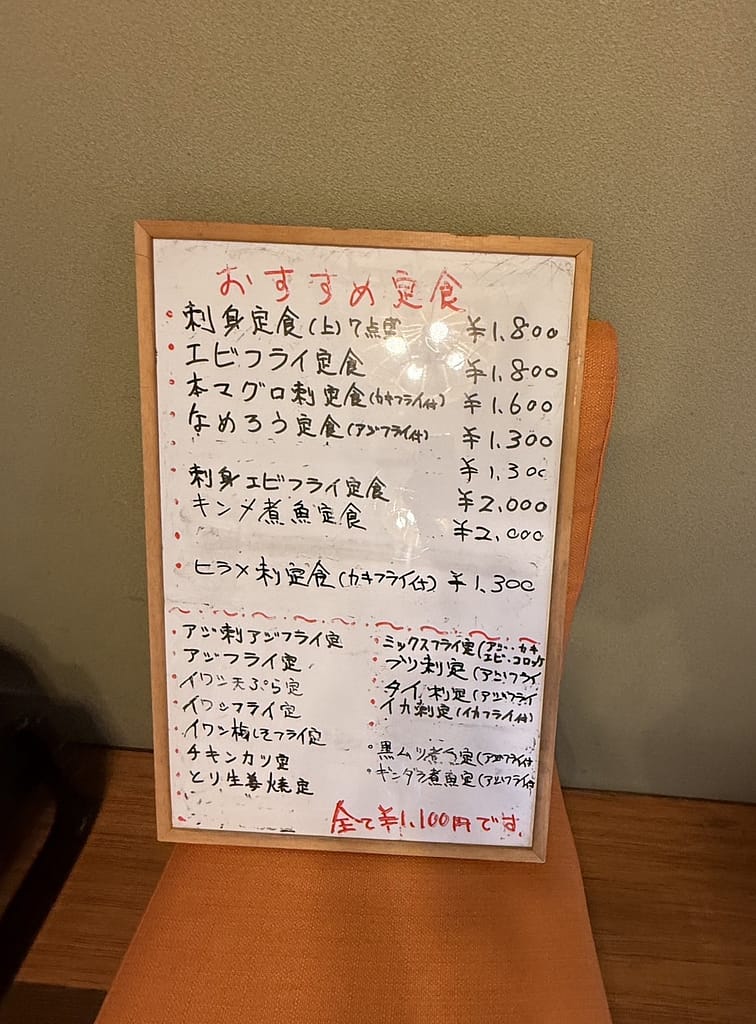 おすすめ定食
刺身定食(上)7点盛 ¥1,800
エビフライ定食 ¥1,800
本マグロ刺定食(カキフライ付) ¥1,600
なめろう定食(アジフライ付) ¥1,300
¥1,300
刺身エビフライ定食 ¥2,000
キンメ煮魚定食 ¥2,000
ヒラメ刺定食(カキフライ付) ¥1,300
アジ刺アジフライ定
アジフライ定
イワシ天ぷら定
イワシフライ定
イワシ梅しそフライ定
チキンカツ定
とり生姜焼定
ミックスフライ定(アジ・カキ
エビ・コロッケ
ブリ刺定(アジフライ
タイ刺定(アジフライ
イカ刺定(イカフライ付)
黒ムツ煮魚定(アジフライ付
ギンダラ煮魚定(アジフライ付
全て¥1,100円です。